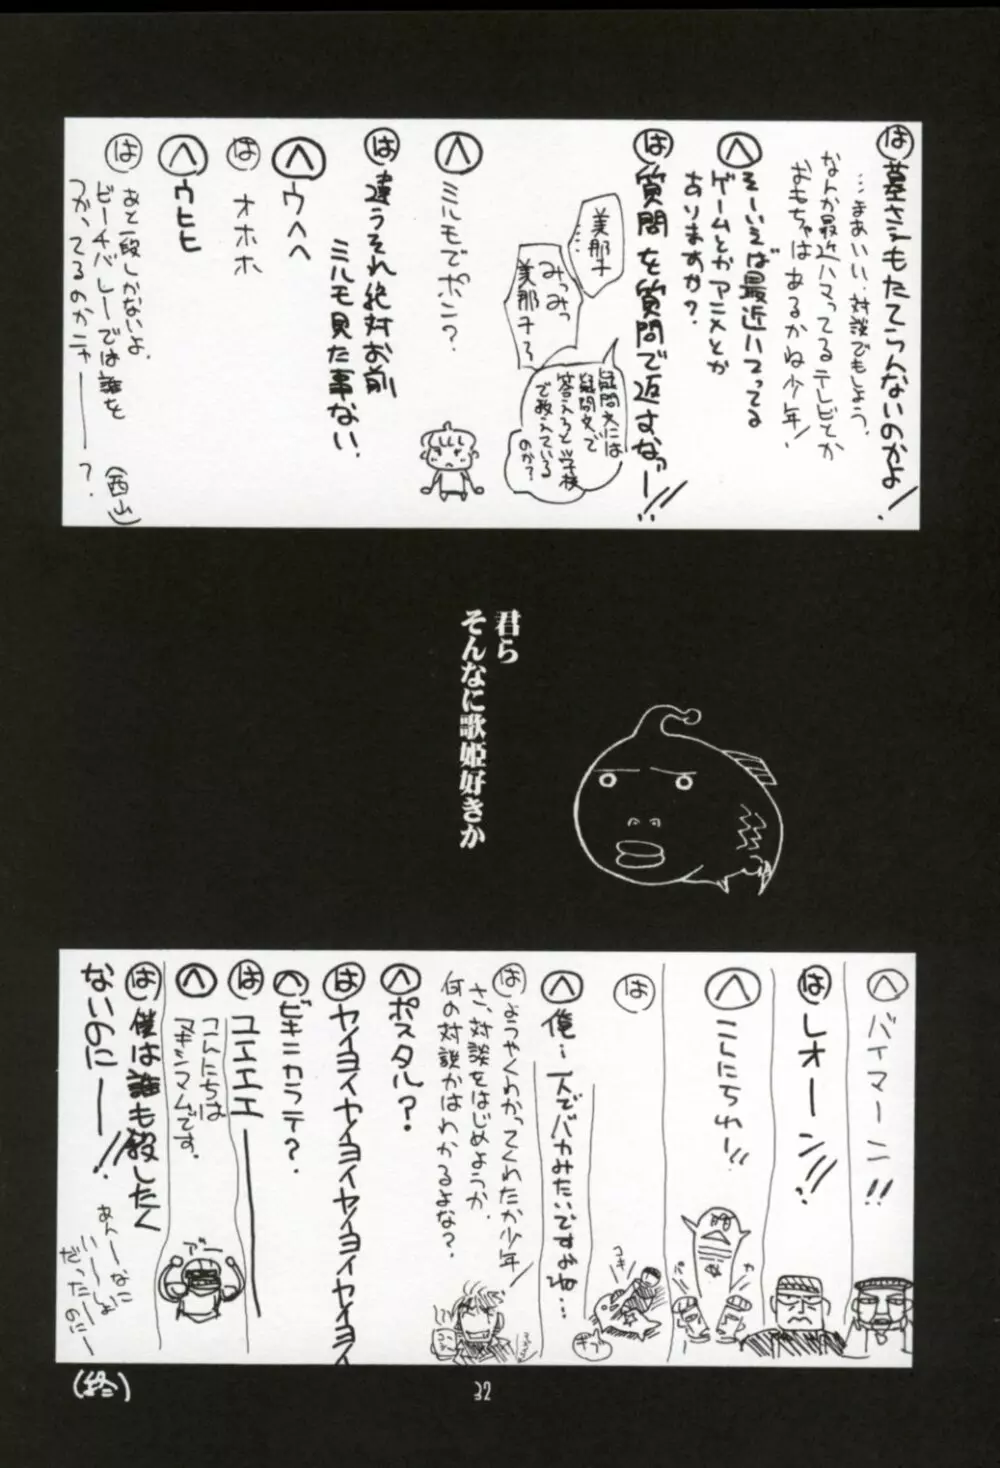 は 墓さえもたてらんないのかよ／！
…まあいい、対談でもしよう。
なんか最近ハマってるテレビとか
おもちゃはあるかね少年／！
へ そーいえば最近ハマってる
ゲームとかアニメとか
ありますか？
は 質問を質問で返すなっー！！
美那子…
みつみつ
美那子ろ
疑問文には
疑問文で
答えろと学校
で教えている
のか？
へ ミルモでポン？
は 違うそれ絶対お前
ミルモ見た事ない。
へ ウヘヘ
は オホホ
へ ウヒヒ
は あと一段しかないよ。
ビーチバレーでは誰を
つかってるのかニャ――？
（西山）
君ら
そんなに歌姫好きか
へ バイマーン！！
は レオーン！！
へ こんにちわー！！
は
コキ
へ 俺…一人でバカみたいですよね…
ギブ
は ようやくわかってくれたか少年／！
さ、対談をはじめようか。
何の対談かはわかるよな？
へ ポスタル？
は ヤイヨイヤイヨイヤイヨイヤイヨイ
へ ビキニカラテ？
は ユエエエ――
へ こんにちは
マキシマムです。
は 僕は誰も殺したく
ないのにー！！
あんーなに
いーしょ
だったーのにー
（終）
32